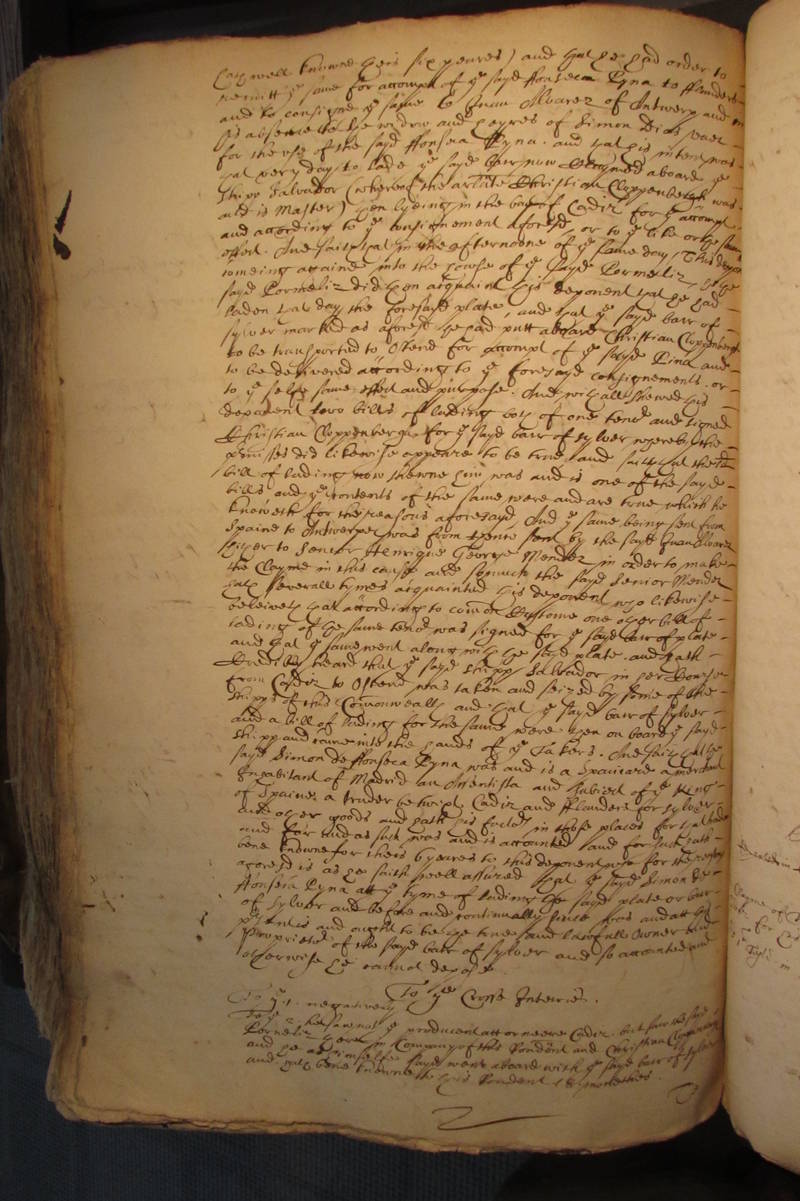 well knowne theis six yeares) and that he had order to
remitt ye same for accompt of ye sayd ffonseca Pyna to fflanders
and to consigne ye same to Juan Alvarez of Antwerp and in
his absence to the widdow and heyres of Simon Dias Vaez
for the use of the sayd ffonseca Pyna. and that his intent was
that very day to lade ye sayd barr now claymed aboard ye
shipp Salvador (whereof the arlate Christian Cloppenbergh was
and is Master) then lyeing in the bay of Cadiz for ye accompt
and according to ye consignement aforesd, or to ye like or the same
effect. And saith that in the afternoone of ye same day, This depont
comeing againe into the howse of ye sayd Cormeliz, hee the
sayd Cormeliz did then acquaint this deponent that he had
laden that day the foresayd plate, and that ye sayd barr of
sylver marked as aforesd he had putt aboard Christian Cloppenbergh
to be transported to Ostend for accompt of ye sayd Pina and
to be delivered according to ye foresayd consignements. or
to ye selfe same effect and purpose. And withall shewed this
deponent two bills of lading both of one tenor and signed
Christian Cloppenbergh for ye sayd barr of sylver whereby the
pmisses did likewise appeare to be true, and saith that the
bill of lading now shewne him was and is one of the sayd
bills and ye contents of the same were and are true which he
knoweth for the reasons aforesayd. And ye same being sent from
Spaine to Antwerpe was from thence sent by the sayd Juan Alvarez
hither to Senior Henrique George Mendez in order to make
the Clayme in this cause and somuch the sayd Senior Mendez
hath severall tymes acquainted this deponent who likewise
beleiveth that according to comon Custome one other bill of
lading of the same tenor was signed for ye sayd barr of plate
and that ye same went along with the sayd plate. and hath
Credibly heard that ye sayd shipp Salvador in her Course
from Cadiz to Ostend was taken and seized by some of the
shipps of this Comonwealth and that ye sayd barr of sylver
and a bill of lading for the same were then on board ye sayd
shipp and came into the hands of ye Takers. And saith that the
sayd Simon de ffonseca Pyna was and is a Spaniard a merchant
Inhabitant of Madrid an Assentista and subiect of ye King
of Spaine, a trader betwixt Cadiz and fflanders for sylver
and other goods and hath his factors in those places for that trade
and for and as such was and is accounted and for such hath
bene knowne for theis 6 yeares to this deponent who for the reasons
aforesd is as he saith well assured that ye sayd Simon de
ffonseca Pyna att ye tyme of lading the sayd plate or barr
of sylver and before and continually since was and att
psent is and ought to be the true and lawfull Owner and
Proprietor of the sayd barr of sylver and so accounted and
otherwise he cannot depose.
To ye Crosse Interies.
To ye 1. negatively
To ye 2. he saw not ye producent att or neere Cadiz. but saw the sayd
Cormeliz there in Company of this rendent and Christian Cloppenbergh
and he himselfe sayd went aboard with ye sayd barr of sylver
and hath bene knowne to this rendent 18 monethes.